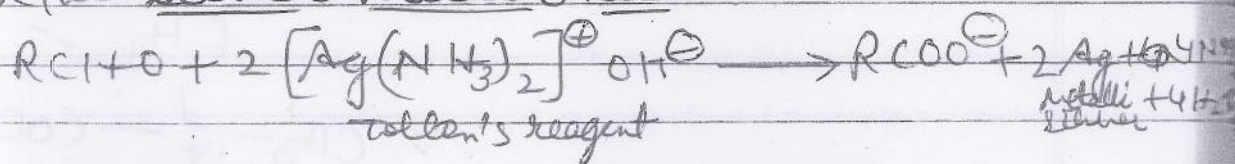 RCHO + 2 [Ag(NH3)2]⊕ OH⊖ ⟶ RCOO⊖ + 2 Ag + 4N
tollen's reagent metalli + 4H
silver